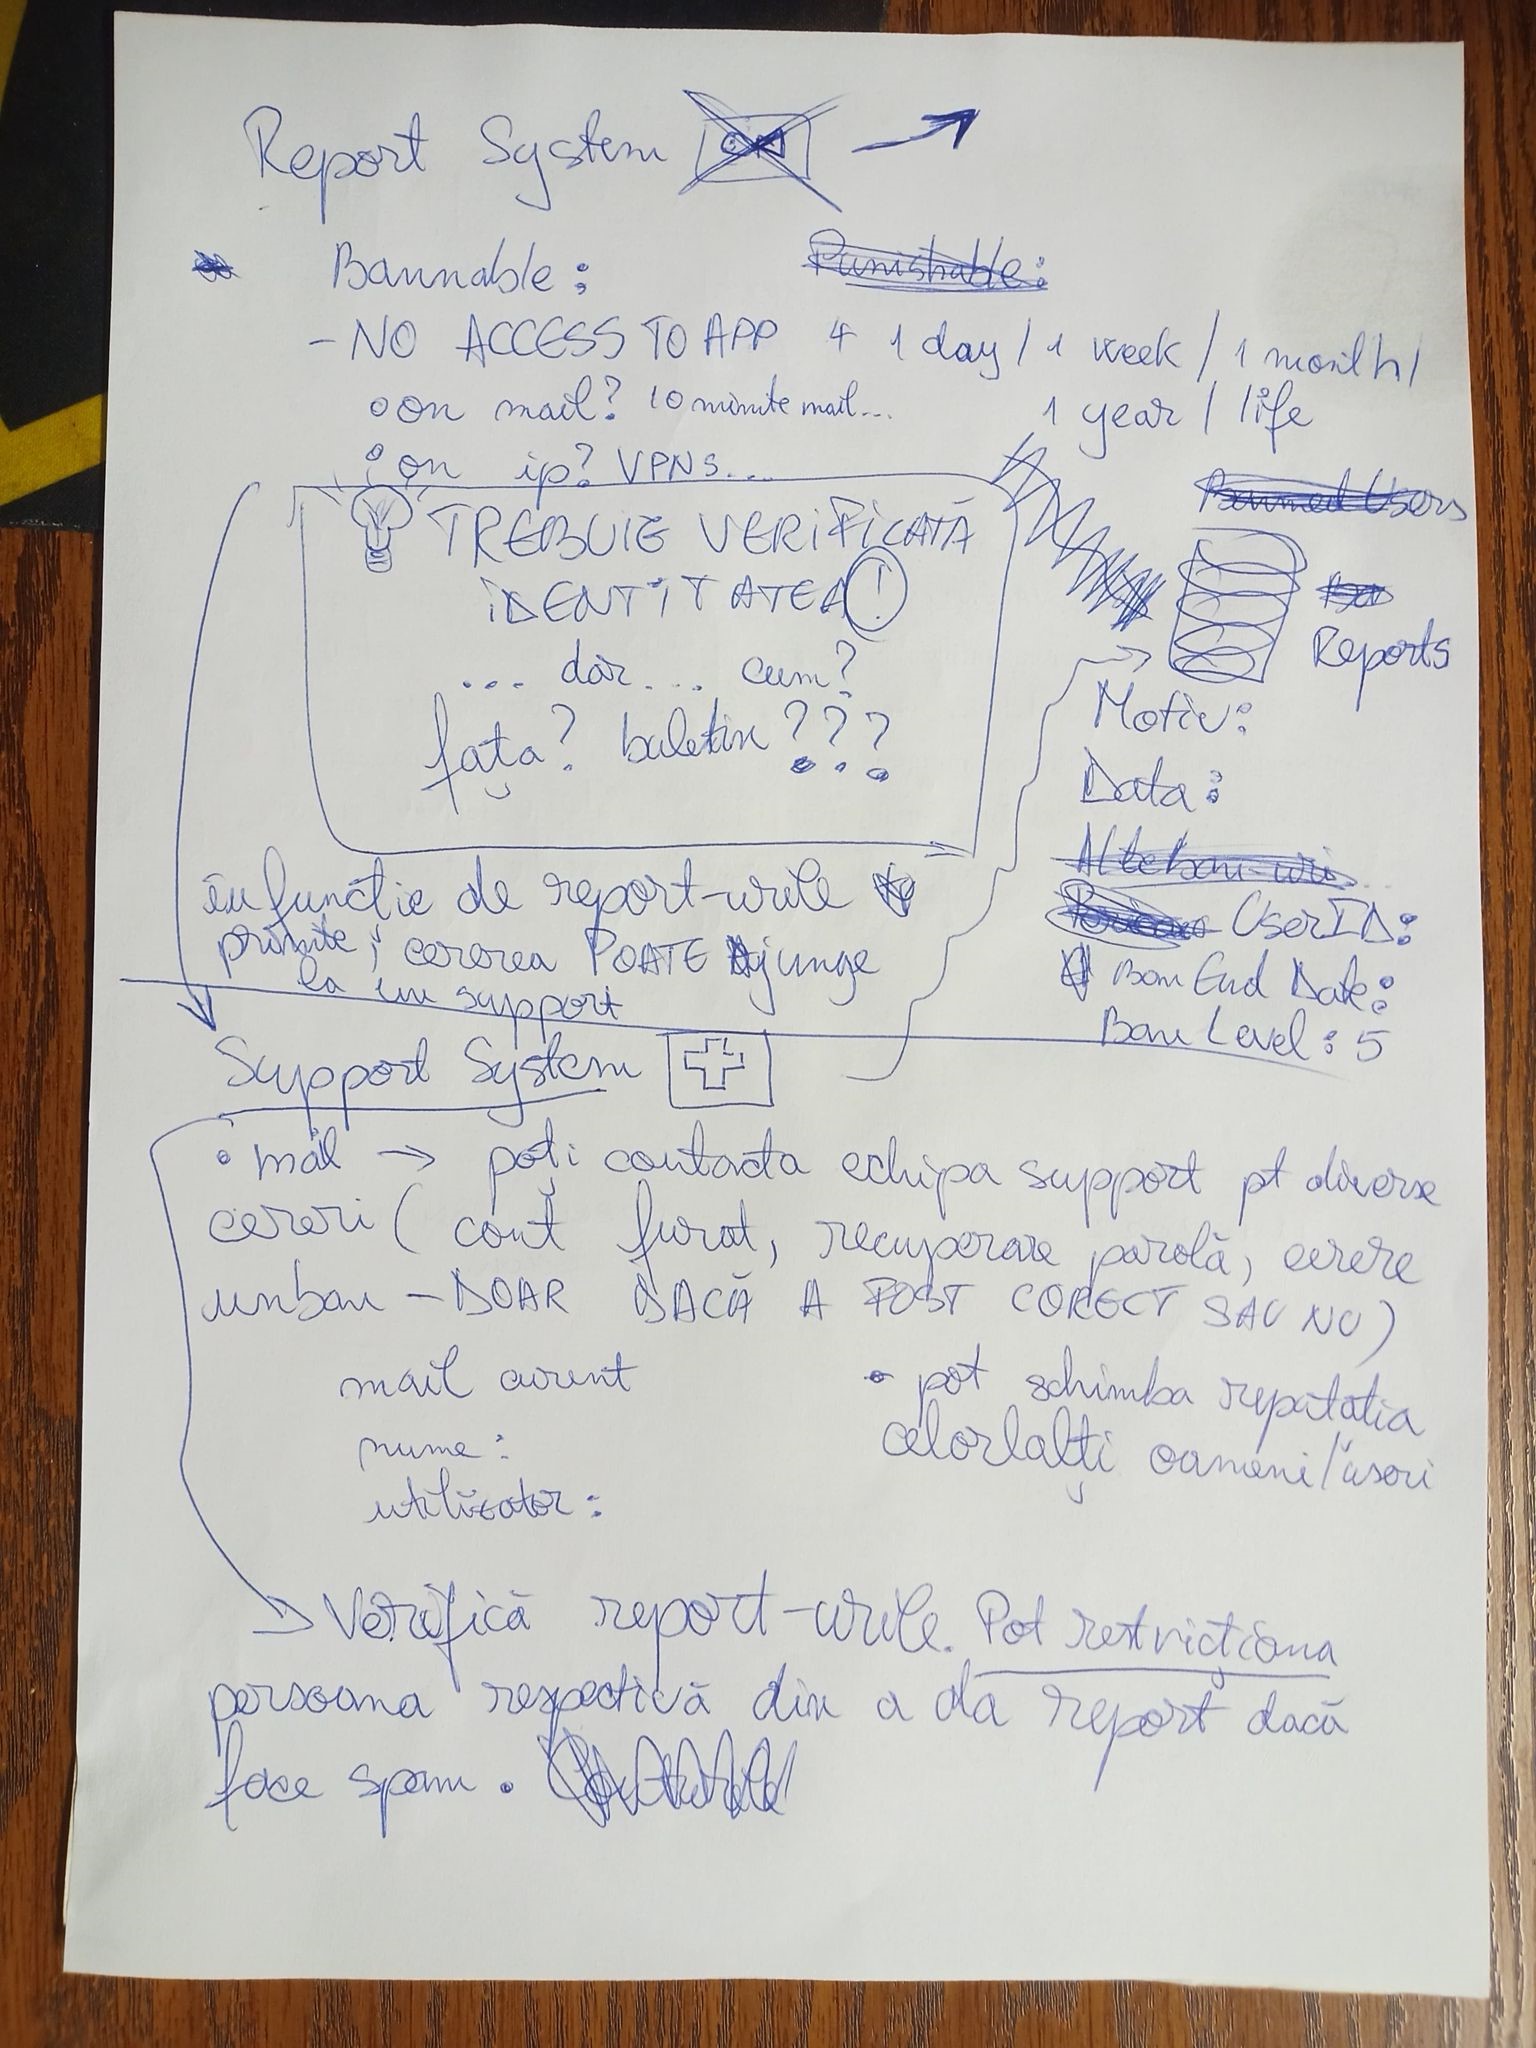 Report System
Bannable:
Punishable:
- NO ACCESS TO APP + 1 day / 1 week / 1 month /
1 year / life
on mail? 10 minute mail...
on ip? VPNs...
TREBUIE VERIFICATĂ
IDENTITATEA !
... dar... cum?
fața? buletin???
Banned Users
Reports
Motiv:
Data:
Alte ban-uri
UserID:
Ban End Date:
Ban Level: 5
în funcție de report-urile
primite, cererea POATE Ajunge
la un support
Support System
• mail → poți contacta echipa support pt diverse
cereri ( cont furat, recuperare parolă, cerere
unban - DOAR DACĂ A FOST CORECT SAU NU )
mail curent
nume:
utilizator:
• pot schimba reputatia
celorlalți oameni/useri
→ Verifică report-urile. Pot restricționa
persoana respectivă din a da report dacă
face spam.